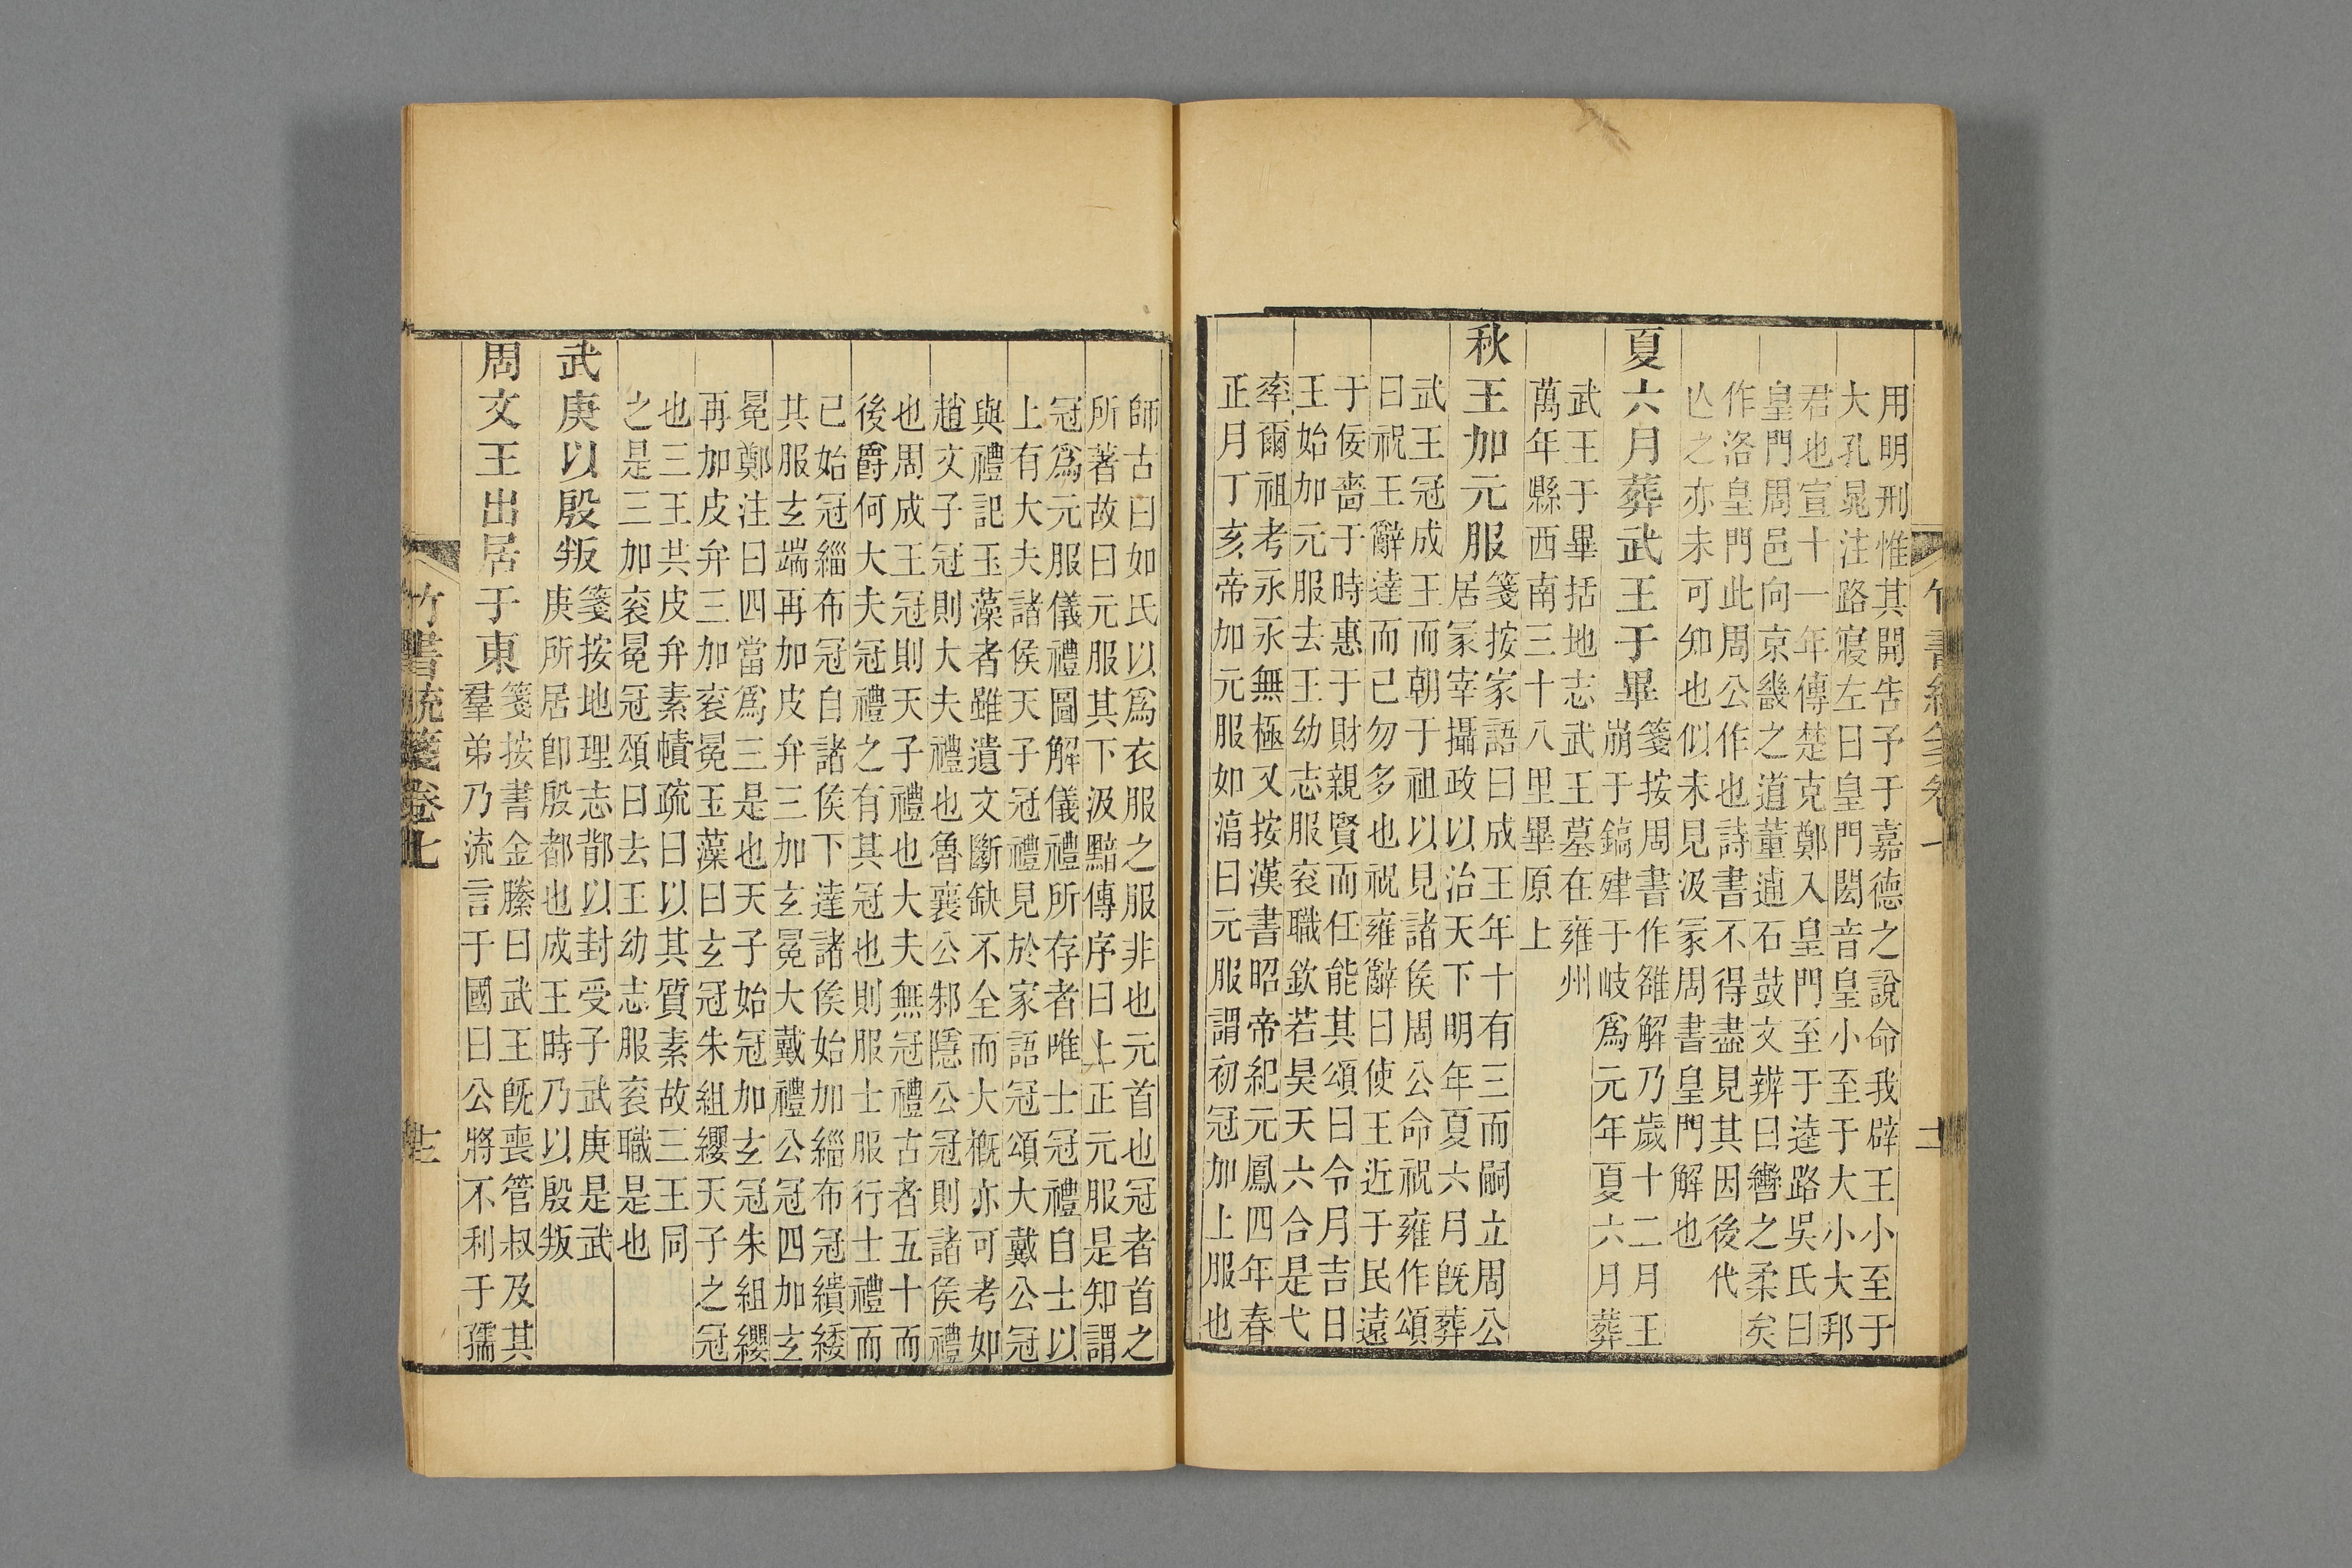 用明刑惟其開告予于嘉德之說命我辟王小至于
大孔晁注路寢左曰皇門閎音皇小至于大小大邦
君也宣十一年傳楚克鄭入皇門至于逵路吳氏曰
皇門周邑向京畿之道董逌石鼓文辨曰轡之柔矣
作洛皇門此周公作也詩書不得盡見其因後代
亾之亦未可知也似未見汲冢周書皇門解也
夏六月葬武王于畢
箋按周書作雒解乃歲十二月王
崩于鎬建于岐爲元年夏六月葬
武王于畢括地志武王墓在雍州
萬年縣西南三十八里畢原上
秋王加元服
箋按家語曰成王年十有三而嗣立周公
居冢宰攝政以治天下明年夏六月旣葬
武王冠成王而朝于祖以見諸侯周公命祝雍作頌
曰祝王辭達而已勿多也祝雍辭曰使王近于民遠
于佞嗇于時惠于財親賢而任能其頌曰令月吉日
王始加元服去王幼志服袞職欽若昊天六合是弋
率爾祖考永永無極又按漢書昭帝紀元鳳四年春
正月丁亥帝加元服如湻曰元服謂初冠加上服也
師古曰如氏以爲衣服之服非也元首也冠者首之
所著故曰元服其下汲黯傳序曰上正元服是知謂
冠爲元服儀禮圖解儀禮所存者唯士冠禮自士以
上有大夫諸侯天子冠禮見於家語冠頌大戴公冠
與禮記玉藻者雖遺文斷缺不全而大槪亦可考如
趙文子冠則大夫禮也魯襄公邾隱公冠則諸侯禮
也周成王冠則天子禮也大夫無冠禮古者五十而
後爵何大夫冠禮之有其冠也則服士服行士禮而
已始冠緇布冠自諸侯下達諸侯始加緇布冠繢緌
其服玄端再加皮弁三加玄冕大戴禮公冠四加玄
冕鄭注曰四當爲三是也天子始冠加玄冠朱組纓
再加皮弁三加袞冕玉藻曰玄冠朱組纓天子之冠
也三王共皮弁素幘疏曰以其質素故三王同
之是三加袞冕冠頌曰去王幼志服袞職是也
武庚以殷叛
箋按地理志鄁以封受子武庚是武
庚所居卽殷都也成王時乃以殷叛
周文王出居于東
箋按書金縢曰武王旣喪管叔及其
羣弟乃流言于國曰公將不利于孺
竹書統箋卷七